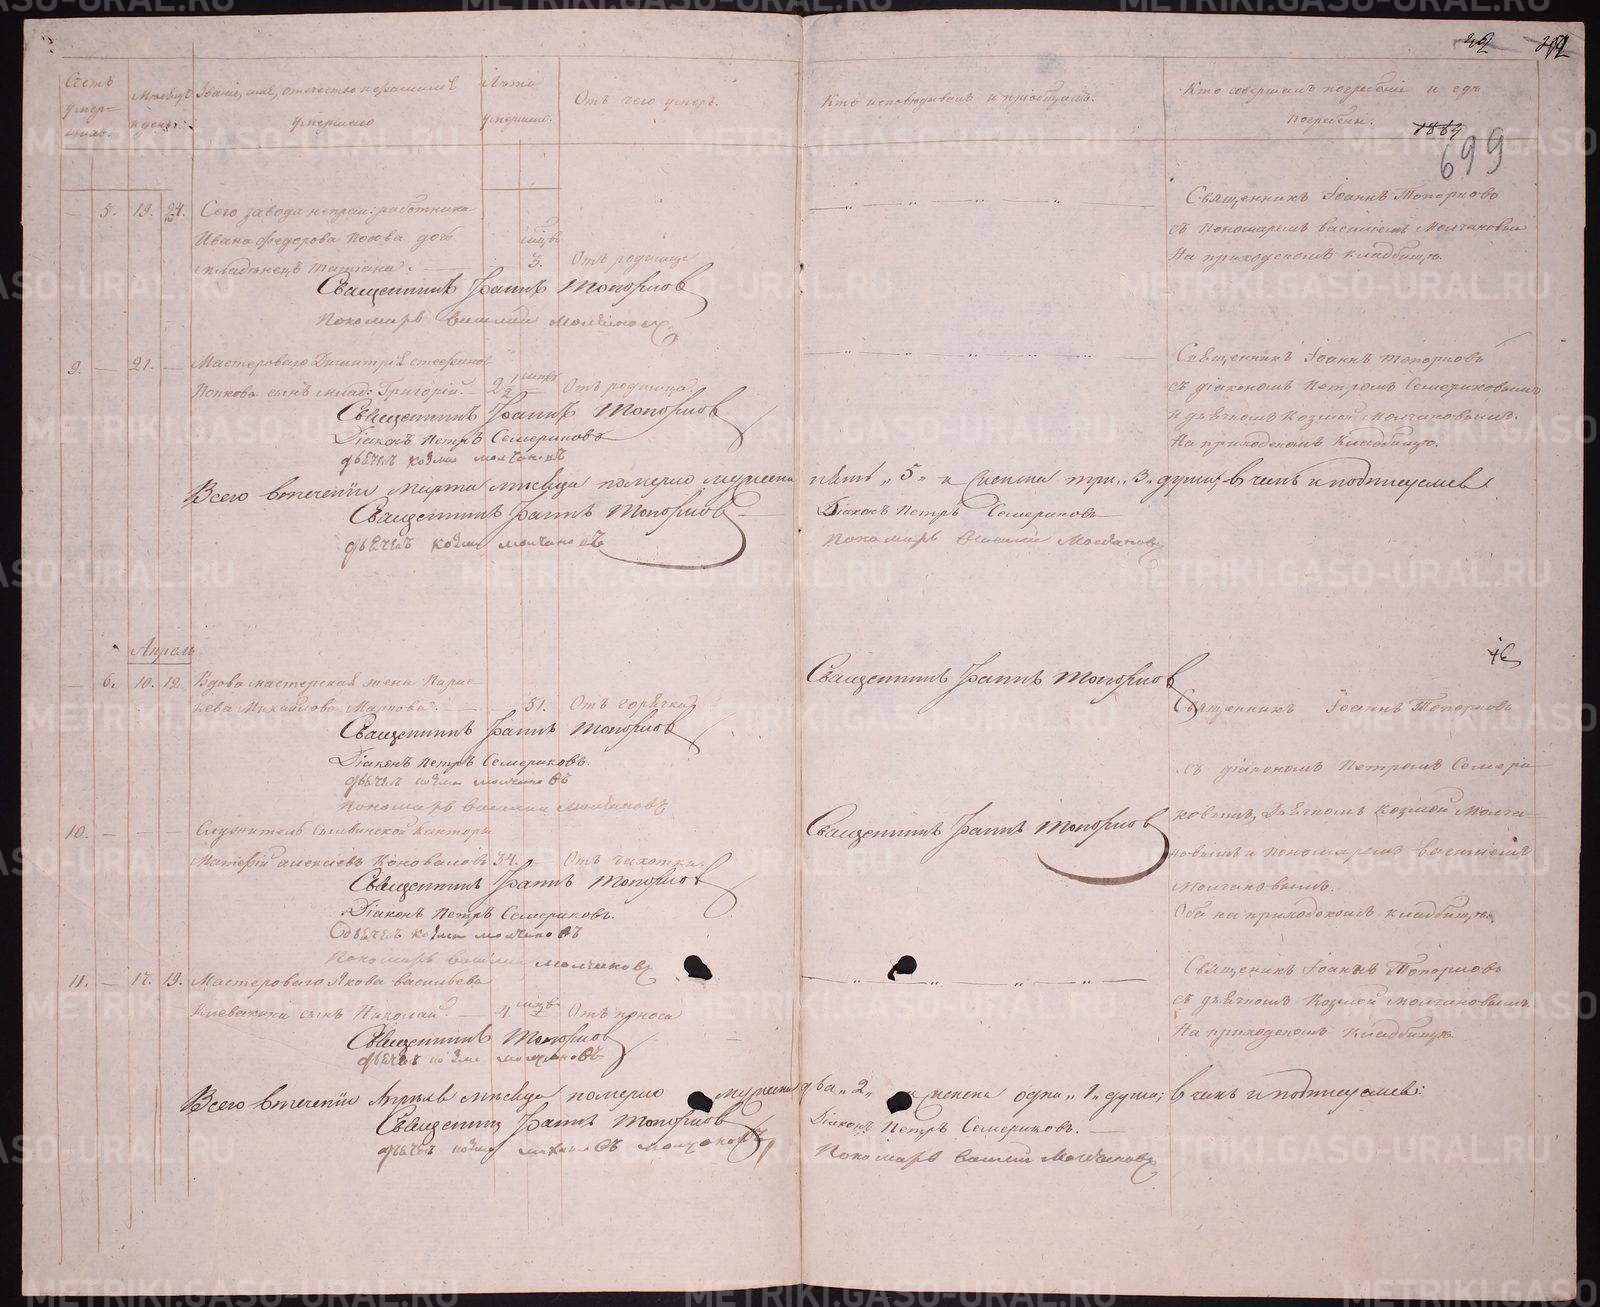 METRIKI.GASO-URAL.RU
Счетъ умер- шихъ.
Месяцъ и день.
Званіе, имя, отчество и фамилія умершаго
Лѣта умершаго.
Отъ чего умеръ.
Кто исповѣдывалъ и пріобщалъ.
Кто совершалъ погребеніе и гдѣ погребены.
1869
699
— 5. 19. 24. Сего завода непрем: работника
Ивана Федорова дочь
младенецъ Татіана. 3. Отъ родимца
Священникъ Іоаннъ Топорковъ
Пономарь Василій Молчановъ
Священникъ Іоаннъ Топорковъ
съ пономаремъ Василіемъ Молчановым
На приходскомъ кладбищѣ.
9. — 21. — Мастероваго Димитрія Стефанова
Попкова сынъ млад: Григорій. 2 1/2 Отъ родимца.
Священникъ Іоаннъ Топорковъ
Діаконъ Петръ Семериковъ
дьячекъ козма молчановъ
Священникъ Іоаннъ Топорковъ
съ діакономъ Петромъ Семериковымъ
и дьячкомъ Козмой Молчановымъ.
На приходскомъ кладбищѣ.
Всего втеченіи Марта мѣсяца померло мужеска пять „5" и женска три „3" души, в чемъ и подписуемся
Священникъ Іоаннъ Топорковъ
дьячекъ козма молчановъ
Діаконъ Петръ Семериковъ
Пономарь Василій Молчановъ
Апрель
— 6. 10. 12. Вдова мастерская жена Парас-
кева Михайлова Маркова. 51. Отъ горячки
Священникъ Іоаннъ Топорковъ
Діаконъ Петръ Семериковъ.
дьячекъ козма молчановъ
Пономарь Василій Молчановъ
Священникъ Іоаннъ Топорковъ
10. — — — Служитель Сылвинской Конторы
Матвѣй Алексѣевъ Коноваловъ 34. Отъ чахотки.
Священникъ Іоаннъ Топорковъ
Діаконъ Петръ Семериковъ.
дьячекъ козма молчановъ
Пономарь Василій Молчановъ
Священникъ Іоаннъ Топорковъ
Священникъ Іоаннъ Топорковъ
съ діакономъ Петромъ Семери-
ковымъ, Дьячкомъ Козмой Молча-
новымъ и пономаремъ Василіемъ
Молчановымъ.
Оба на приходскомъ кладбищѣ.
11. — 17. 19. Мастероваго Якова Васильева
сынъ Николай. 4 Отъ поноса
Священникъ Топорковъ
дьячекъ козма молчановъ
Священникъ Іоаннъ Топорковъ
съ дьячкомъ Козмой Молчановымъ
На приходскомъ кладбищѣ.
Всего втеченіи Апрѣля мѣсяца померло мужеска два „2" и женска одна „1" душа; в чемъ и подписуемся:
Священникъ Іоаннъ Топорковъ
дьячекъ козма молчановъ
Діаконъ Петръ Семериковъ.
Пономарь Василій Молчановъ